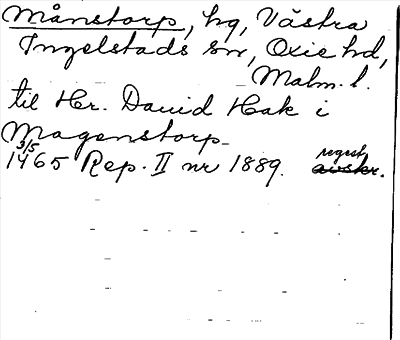 Månstorp, hg, Västra
Ingelstads sn, Oxie hd,
Malm. l.
til Hr. Dauid Hak i
Magenstorp.
3/5
1465 Rep. II nr 1889. regest
avskr.